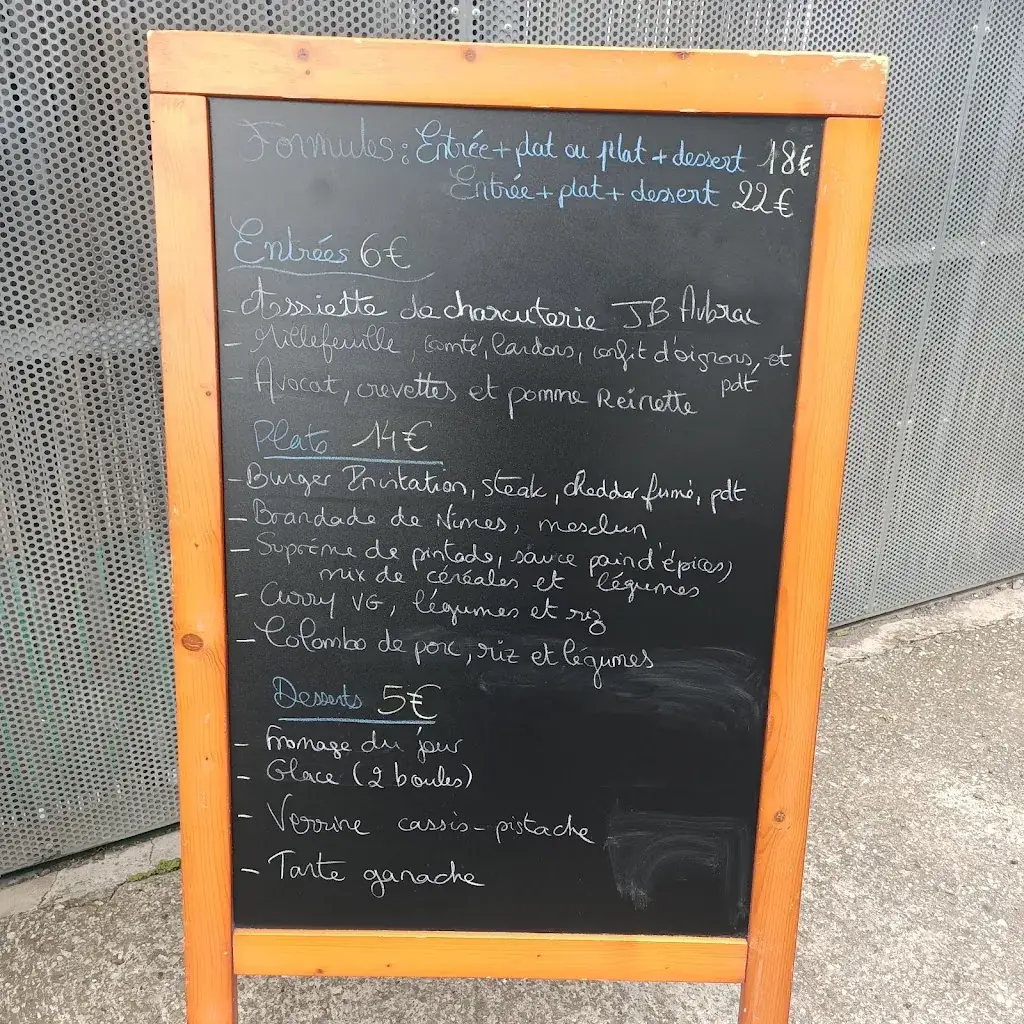 Formules: Entrée + plat ou plat + dessert 18€
Entrée + plat + dessert 22€
Entrées 6€
- Assiette de charcuterie JB Aubrac
- Millefeuille, comté, lardons, confit d'oignons, et
pdt
- Avocat, crevettes et pomme Reinette
Plats 14€
- Burger Printation, steak, cheddar fumé, pdt
- Brandade de Nîmes, mesclun
- Suprême de pintade, sauce pain d'épices,
mix de céréales et légumes
- Curry VG, légumes et riz
- Colombo de porc, riz et légumes
Desserts 5€
- Fromage du jour
- Glace (2 boules)
- Verrine cassis-pistache
- Tarte ganache